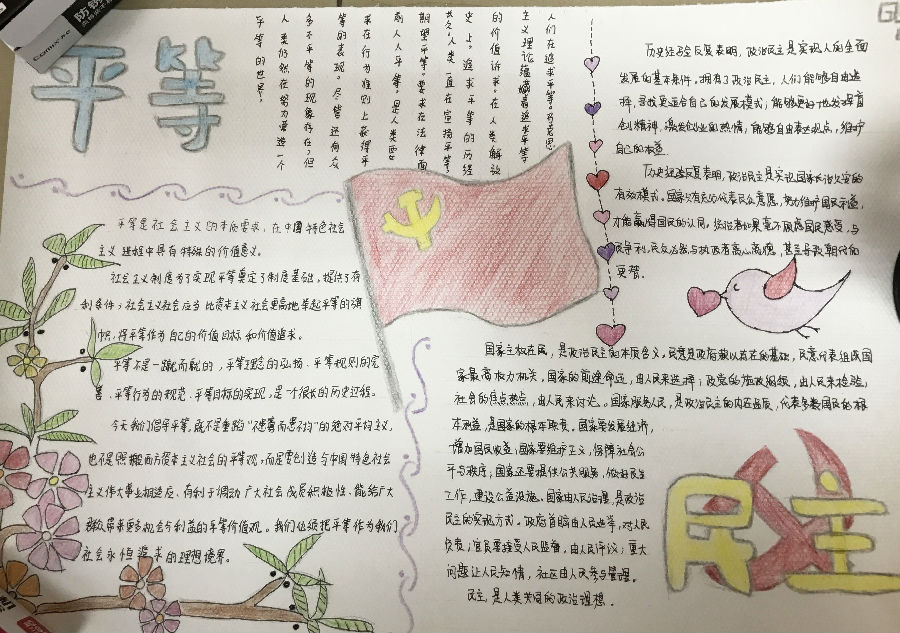 平等
人们在追求平等。马克思
主义理论蕴藏着追求平等
的价值诉求。在人类解放
史上,追求平等的历经
太久,人类一直在宣扬平等,
期望平等。要求在法律面
前人人平等。是人类要
求在行为准则上获得平
等的表现。尽管还有众
多不平等的现象存在,但
人类仍然在努力营造一个
平等的世界。
平等是社会主义的本质要求,在中国特色社会
主义进程中具有特殊的价值意义。
社会主义制度为了实现平等奠定了制度基础,提供了有
利条件;社会主义社会应当比资本主义社会更高地举起平等的旗
帜,将平等作为自己的价值目标和价值追求。
平等不是一蹴而就的,平等理念的弘扬、平等规则的完
善、平等行为的规范、平等目标的实现,是一个很长的历史过程。
今天我们倡导平等,既不是重蹈“不患寡而患不均”的绝对平均主义,
也不是照搬西方资本主义社会的平等观,而是要创造与中国特色社会
主义伟大事业相适应、有利于调动广大社会成员积极性、能给广大
群众带来更多机会与利益的平等价值观。我们必须把平等作为我们
社会永恒追求的理想境界。
历史经验反复表明,政治民主是实现人的全面
发展的基本条件。拥有了政治民主,人们能够自由选
择,寻找更适合自己的发展模式;能够更好地发挥首
创精神,激发创业的热情,能够自由表达观点,维护
自己的权益。
历史经验反复表明,政治民主是实现国家长治久安的
有效模式。国家只有充分代表民众意愿,努力维护国民利益,
才能赢得国民的认同。统治者如果毫不顾虑国民感受,与
民争利,民众必然与执政者离心离德,甚至导致朝代的
更替。
国家主权在民,是政治民主的本质含义。民意是政府赖以存在的基础,民意代表组成国
家最高权力机关,国家的前途命运,由人民来选择;政党的施政纲领,由人民来检验,
社会的焦点热点,由人民来讨论。国家服务人民,是政治民主的内在逻辑,代表多数国民的根
本利益,是国家的根本职责。国家要发展经济,
增加国民收益;国家要维护正义,保障社会公
平与秩序;国家还要提供公共服务,做好民生
工作,建设公益设施。国家由人民治理,是政治
民主的实现方式。政府首脑由人民选举,对人民
负责;官员要接受人民监督,由人民评议;重大
问题让人民知情,社区由人民参与管理。
民主,是人类共同的政治理想。
民主